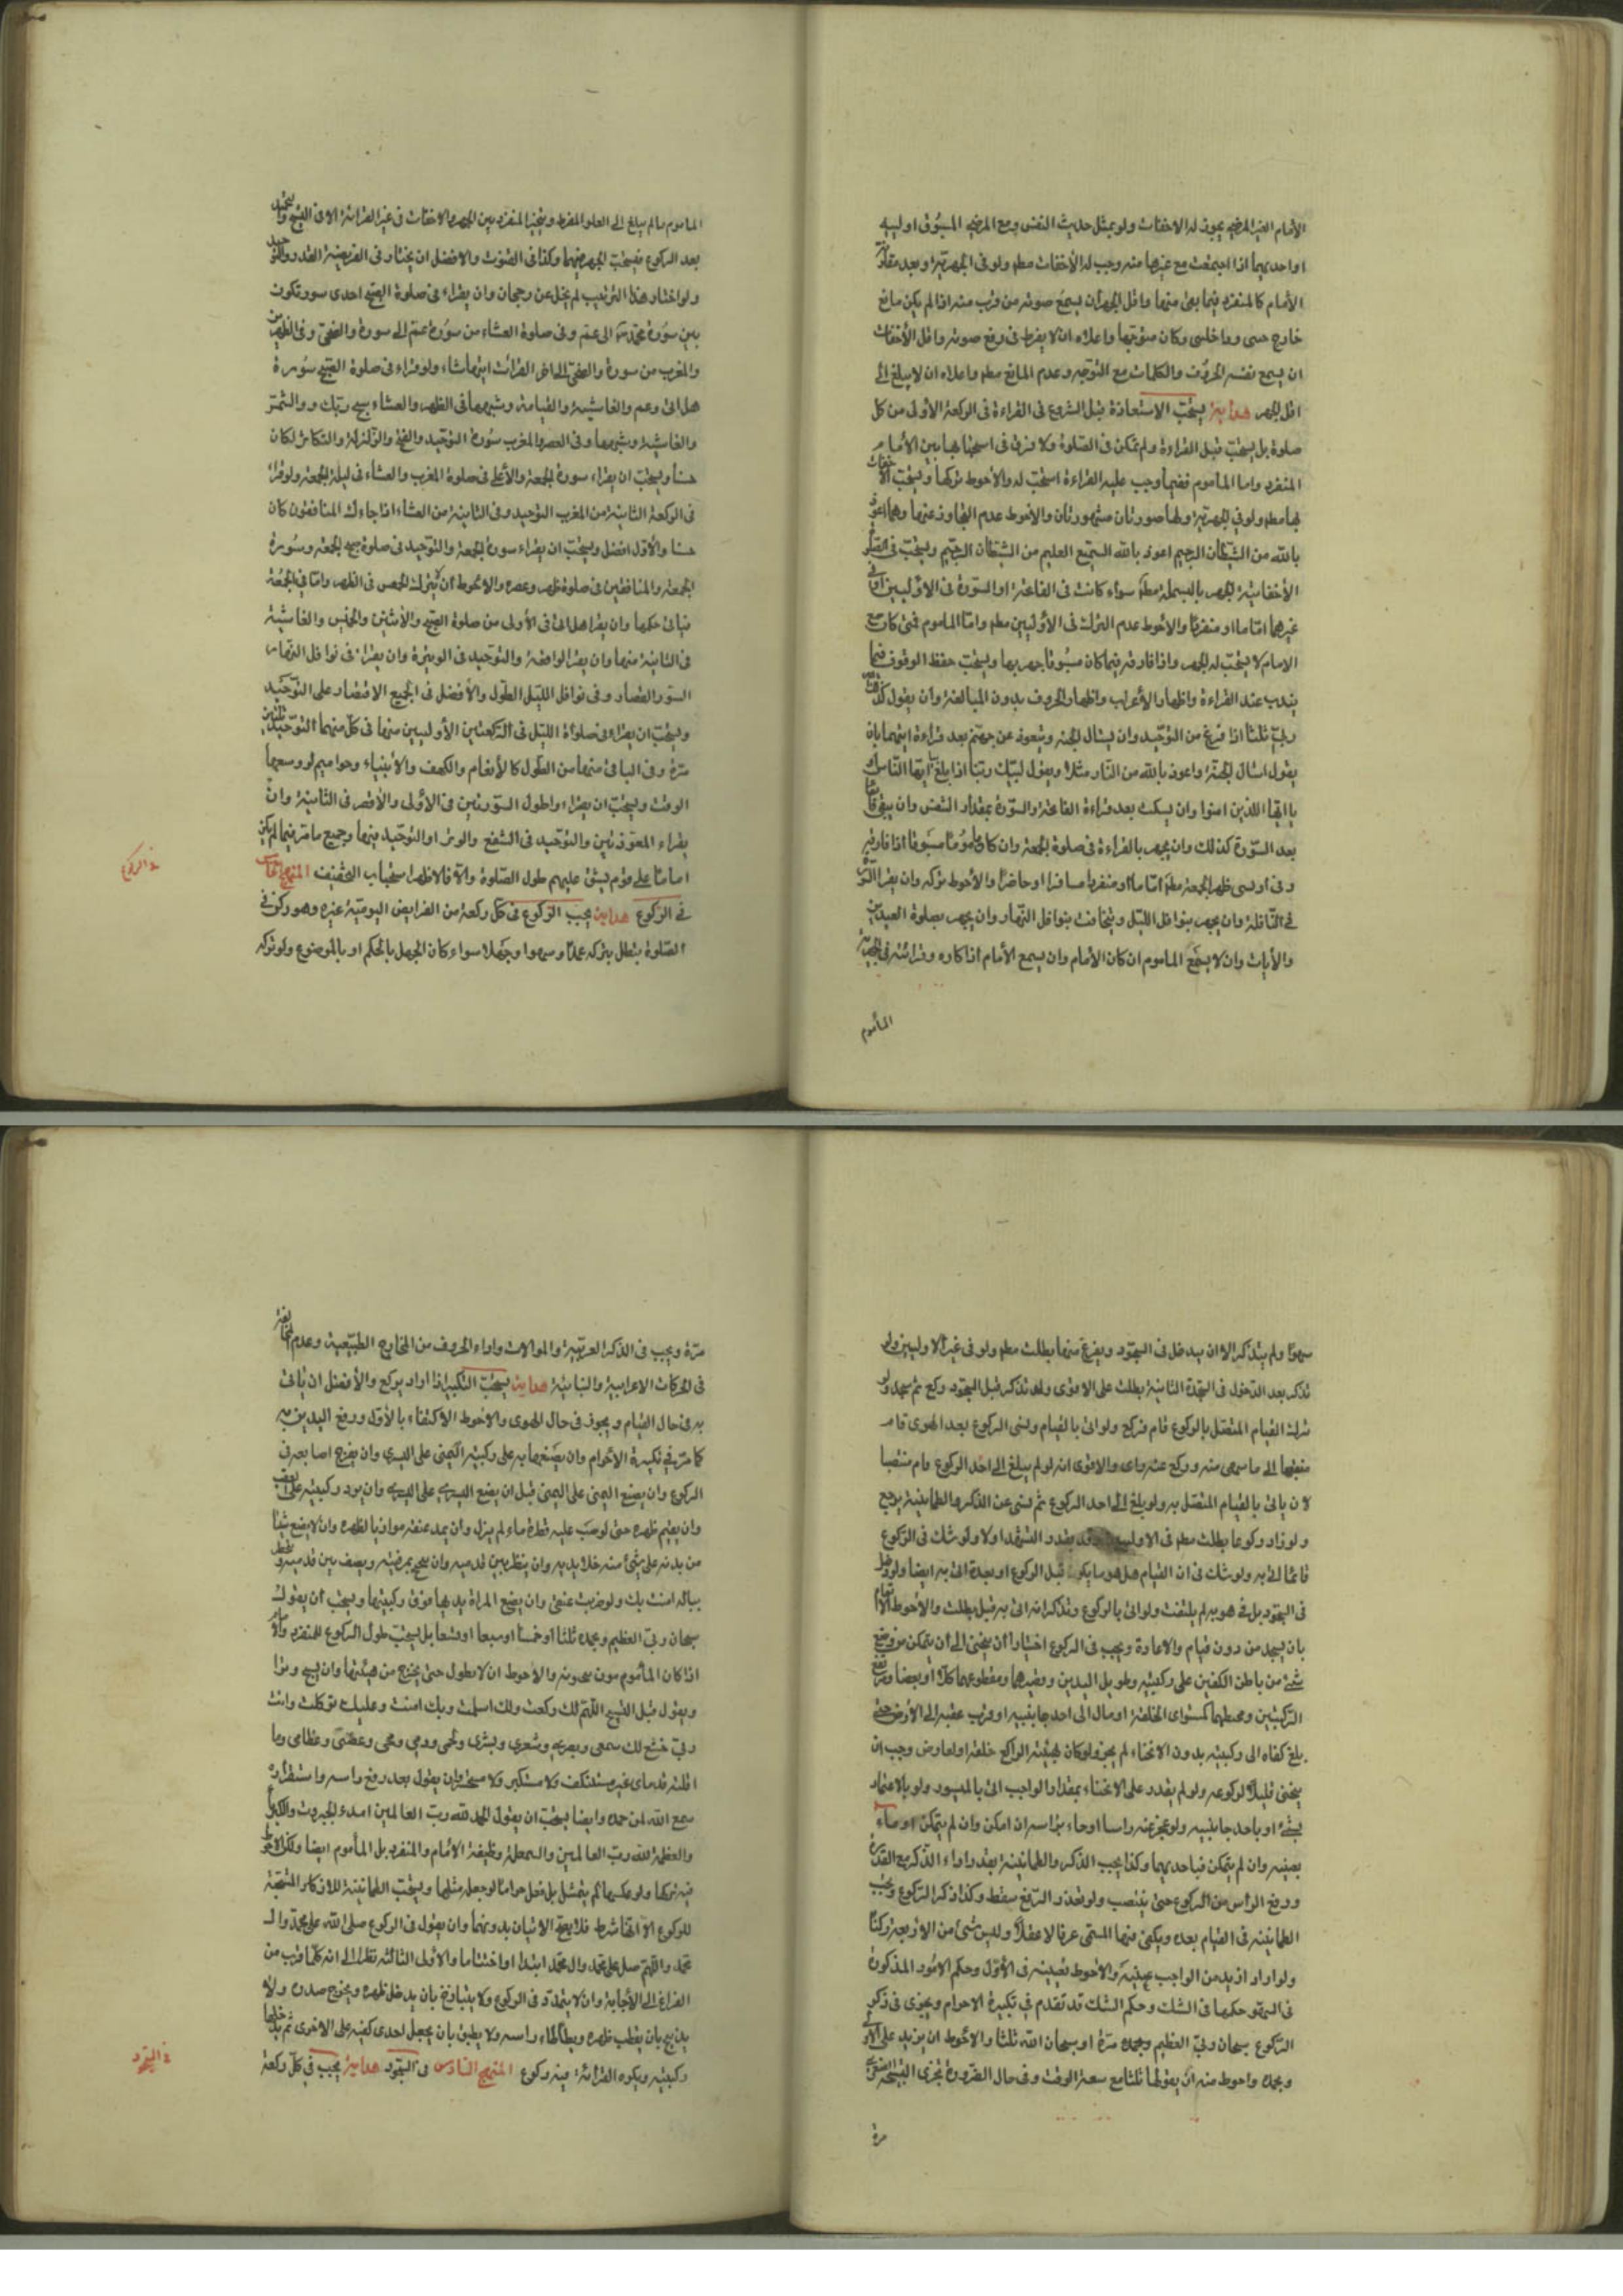 الأمام الغير المرضي يجوز له الاخفات ولو بمثل حديث النفس ومع المرضي المسبوق اوليه
او احديهما اذا اجتمعت مع غيرها منه وجب له الأخفات مطم ولو في الجهرية وبعد مفارقة
الأمام كالمنفرد فيما بقى منها واقل الجهر أن يسمع صوته من قرب منه اذا لم يكن مانع
خارج حسى وداخلى وكان متوجها واعلاه ان لا يفرط في رفع صوته واقل الأخفات
ان يسمع نفسه الحروف والكلمات مع التوجه وعدم المانع مطم واعلاه ان لا يبلغ الى
اقل الجهر هداية يستحب الاستعاذة قبل الشروع في القراءة في الركعة الأولى من كل
صلوة بل يستحب قبل القراءة ولم تمكن في الصلوة ولا فرق في استحبابها بين الأمام
المنفرد واما المأموم ففيما وجب عليه القراءة استحب له والأحوط تركها ويستحب الاخفات
بها مطم ولو في الجهرية ولها صورتان مشهورتان والأحوط عدم التجاوز عنهما وهما اعوذ
بالله من الشيطان الرجيم اعوذ بالله السميع العليم من الشيطان الرجيم ويستحب في الصلو
الأخفاتية الجهر بالبسملة مطم سواء كانت في الفاتحة او السورة في الاوليين او في
غيرهما اماما او منفردا والأحوط عدم الترك في الأوليين مطم واما المأموم فمتى كان مع
الامام لا يستحب له الجهر واذا فارقه فيما كان مسبوقا جهر بها ويستحب حفظ الوقوف فيما
يندب عند القراءة واظهار الأعراب واظهار الحروف بدون المبالغة وان يقول كذلك الله
ربي ثلثا اذا فرغ من التوحيد وان يسئال الجنة ويتعوذ عن جهنم بعد قراءة ايتهما بان
يقول اسئال الجنة واعوذ بالله من النار مثلا ويقول لبيك ربنا اذا بلغ يا ايها الناس او
يا ايها الذين امنوا وان يسكت بعد قراءة الفاتحة والسورة بمقدار النفس وان يبقى قائما
بعد السورة كذلك وان يجهر بالقراءة في صلوة الجمعة وان كان مأموما مسبوقا اذا فارقه
وفي اوليى ظهر الجمعة مطم اماما او منفردا مسافرا او حاضرا والأحوط تركه وان يقرا السورة
في النافلة وان يجهر بنوافل الليل ويخافت بنوافل النهار وان يجهر بصلوة العيدين
والأيات وان لا يسمع المأموم ان كان الأمام وان يسمع الأمام اذكاره وقرائته في الجهرية
المأموم
المأموم ما لم يبلغ الى العلو المفرط ويتخير المنفرد بين الجهر والاخفات في غير القرائة الا في التسبيح والتحميد
بعد الركوع فيستحب الجهر فيهما وكذا في القنوت والافضل ان يختار في الفريضة القدر والتوحيد
ولو اختار هذا الترتيب لم يخل عن رجحان وان يقراء في صلوة الصبح احدى سور تكون
بين سورة محمد ص الى عم وفي صلوة العشاء من سورة عم الى سورة والضحى وفي الظهرين
والمغرب من سورة والضحى الى اخر القران ايتها شاء ولو قراء في صلوة الصبح سورة
هل اتى وعم والغاشية والقيامة وشبهها في الظهر والعشاء سبح ربك و والشمس
والغاشية وشبهها وفي العصر والمغرب سورة التوحيد والفتح والزلزلة والتكاثر لكان
حسنا ويستحب ان يقراء سورة الجمعة والأعلى في صلوة المغرب والعشاء في ليلة الجمعة ولو قرا
في الركعة الثانية من المغرب التوحيد وفي الثانية من العشاء اذا جاءك المنافقون كان
حسنا والأول افضل ويستحب ان يقراء سورة الجمعة والتوحيد في صلوة صبح الجمعة وسورة
الجمعة والمنافقين في صلوة ظهر وعصره والاحوط ان لا يترك الجهر في الظهر واما في الجمعة
فياتى حكمها وان يقرا هل اتى في الأولى من صلوة الصبح والأثنين والخميس والغاشية
في الثانية منها وان يقرا الواقعة والتوحيد في الوتيرة وان يقراء في نوافل النهار
السور القصار وفي نوافل الليل الطول والأفضل في الجميع الاقتصار على التوحيد
ويستحب ان يقراء في صلوة الليل في الركعتين الأوليين منها في كل منهما التوحيد ثلثين
مرة وفي الباقي منها من الطول كالأنعام والكهف والأنبياء وحواميم لو وسعها
الوقت ويستحب ان يقراء اطول السورتين في الأولى والأقصر في الثانية وان
يقراء المعوذتين والتوحيد في الشفع والوتر او التوحيد فيها وجميع ما مر فيما لم يكن
اماما على قوم يشق عليهم طول الصلوة والا فالاظهر استحباب التخفيف المنهج الخامس
في الركوع هداية يجب الركوع في كل ركعة من الفرايض اليومية وغيره وهو ركن في
الصلوة تبطل بتركه عمدا وسهوا وجهلا سواء كان الجهل بالحكم او بالموضوع ولو تركه
في الركوع
سهوا ولم يتذكر الا ان يدخل في السجود ويفرغ منها بطلت مطم ولو في غير الاوليين ولو
تذكر بعد الدخول في السجدة الثانية بطلت على الاقوى ولو تذكر قبل السجود ركع ثم سجد ولو
ترك القيام المتصل بالركوع قام فركع ولو اتى بالقيام ونسى الركوع بعد الهوى قام
منتهيا الى ما سهى منه وركع عنه واى والاقوى انه لو لم يبلغ الى احد الركوع قام منتصبا
لان ياتى بالقيام المتصل به ولو بلغ الى احد الركوع ثم نسى عن الذكر والطمانينة يرجع
ولو زاد ركوعا بطلت مطم في الاوليين قدر بقدر التشهد اولا ولو شك في الركوع
قائما اتى به ولو شك في ان القيام هل هو ما يكون قبل الركوع او بعده اتى به ايضا ولو دخل
في السجود بل في هويه لم يلتفت ولو اتى بالركوع وتذكر انه اتى به قبل بطلت والأحوط الاتمام
بان يسجد من دون قيام والاعادة ويجب في الركوع اختيارا أن ينحنى الى أن يتمكن من وضع
شئ من باطن الكفين على ركبتيه وطويل اليدين وقصيرهما ومقطوعهما كلا او بعضا ومرتفع
الركبتين ومحطهما كمستوى الخلقة او مال الى احد جانبيه او قرب عقبه الى الأرض حتى
بلغ كفاه الى ركبتيه بدون الانحناء لم يجز ولو كان بهيئة الراكع خلقة او لعارض وجب ان
ينحنى قليلا لركوعه ولو لم يقدر على الانحناء بمقدار الواجب اتى بالميسور ولو بالاعتماد
بشئ او باحد جانبيه ولو عجز عنه راسا اوماء براسه ان امكن وان لم يتمكن اوماء
بعينيه وان لم يتمكن فباحديهما وكذا يجب الذكر والطمانينة بقدر اداء الذكر مع القدرة
ورفع الرأس من الركوع حتى ينتصب ولو تعذر الرفع سقط وكذا ذكر الركوع ويجب
الطمانينة في القيام بعده ويكفى فيها المسمى عرفا لا عقلا وليس شئ من الأربعة ركنا
ولو اراد ازيد من الواجب عينه والأحوط تعيينه في الأول وحكم الامور المذكورة
في السهو حكمها في الشك وحكم الشك قد تقدم في تكبيرة الاحرام ويجزى في ذكر
الركوع سبحان ربي العظيم وبحمده مرة او سبحان الله ثلثا والأحوط ان يزيد على الأول
وبحمده واحوط منه ان يقولها ثلثا مع سعة الوقت وفي حال الضرورة يجزى التسبيحة الصغرى
مرة
مرة ويجب في الذكر العربية والموالات واداء الحروف من المخارج الطبيعية وعدم المخالفة
في الحركات الاعرابية والبنائية هداية يستحب التكبير اذا اراد يركع والأفضل ان ياتى
به في حال القيام ويجوز في حال الهوى والاحوط الاكتفاء بالأول ورفع اليدين به
كما مر في تكبيرة الأحرام وان يضعهما به على ركبتيه اليمنى على اليسرى وان يفرج اصابعه في
الركوع وان يضع اليمنى على اليمنى قبل ان يضع اليسرى على اليسرى وان يرد ركبتيه على العقب
وان يقيم ظهره حتى لو صب عليه قطرة ماء لم يزل وأن يمد عنقه موازيا لظهره وان لا يضع شيئا
من بدنه على شئ منه خلا يديه وان ينظر بين قدميه وان يجنح بمرفقيه ويصف بين قدميه ويخطر
بباله امنت بك ولو ضربت عنقى وان يضع المراة يديها فوق ركبتيها ويستحب أن يقول
سبحان ربي العظيم وبحمده ثلثا او خمسا او سبعا او تسعا بل يستحب طول الركوع للمنفرد والامام
اذا كان المأموم مون يحبونه والأحوط ان لا يطول حتى يخرج من هيئتها وان يسبح وترا
ويقول قبل التسبيح اللهم لك ركعت ولك اسلمت وبك امنت وعليك توكلت وانت
ربي خشع لك سمعى وبصرى وشعرى وبشرى ولحمى ودمى ومخى وعصبى وعظامى وما
اقلته قدماى غير مستنكف ولا مستكبر ولا مستحسر وان يقول بعد رفع راسه واستقراره
سمع الله لمن حمده وايضا يستحب ان يقول الحمد لله رب العالمين اهل الجبروت والكبرياء
والعظمة لله رب العالمين والسمعلة وظيفة الأمام والمنفرد بل المأموم ايضا ولكن الاحوط
فيه تركها ولو عكسها لم يتمثل بل فعل حراما لو جعله مثلها ويستحب الطمانينة للاذكار المستحبة
للركوع الا انها شرط فلا يصح الاتيان بدونها وان يقول في الركوع صلى الله على محمد وال
محمد واللهم صل على محمد وال محمد ابتداء او اختتاما والاولى الثالثة نظرا الى انه كلما قرب من
الفراغ الى الأجابة وان لا يتمدد في الركوع ولا يتبازخ بان يدخل ظهره ويخرج صدره ولا
يدبح بان يقطب ظهره ويطاطاء راسه ولا يطبق بان يجعل احدى كفيه على الاخرى ثم يدخلهما
ركبتيه ويكره القرائة فيه ركوع المنهج السادس في السجود هداية يجب في كل ركعة
في السجود